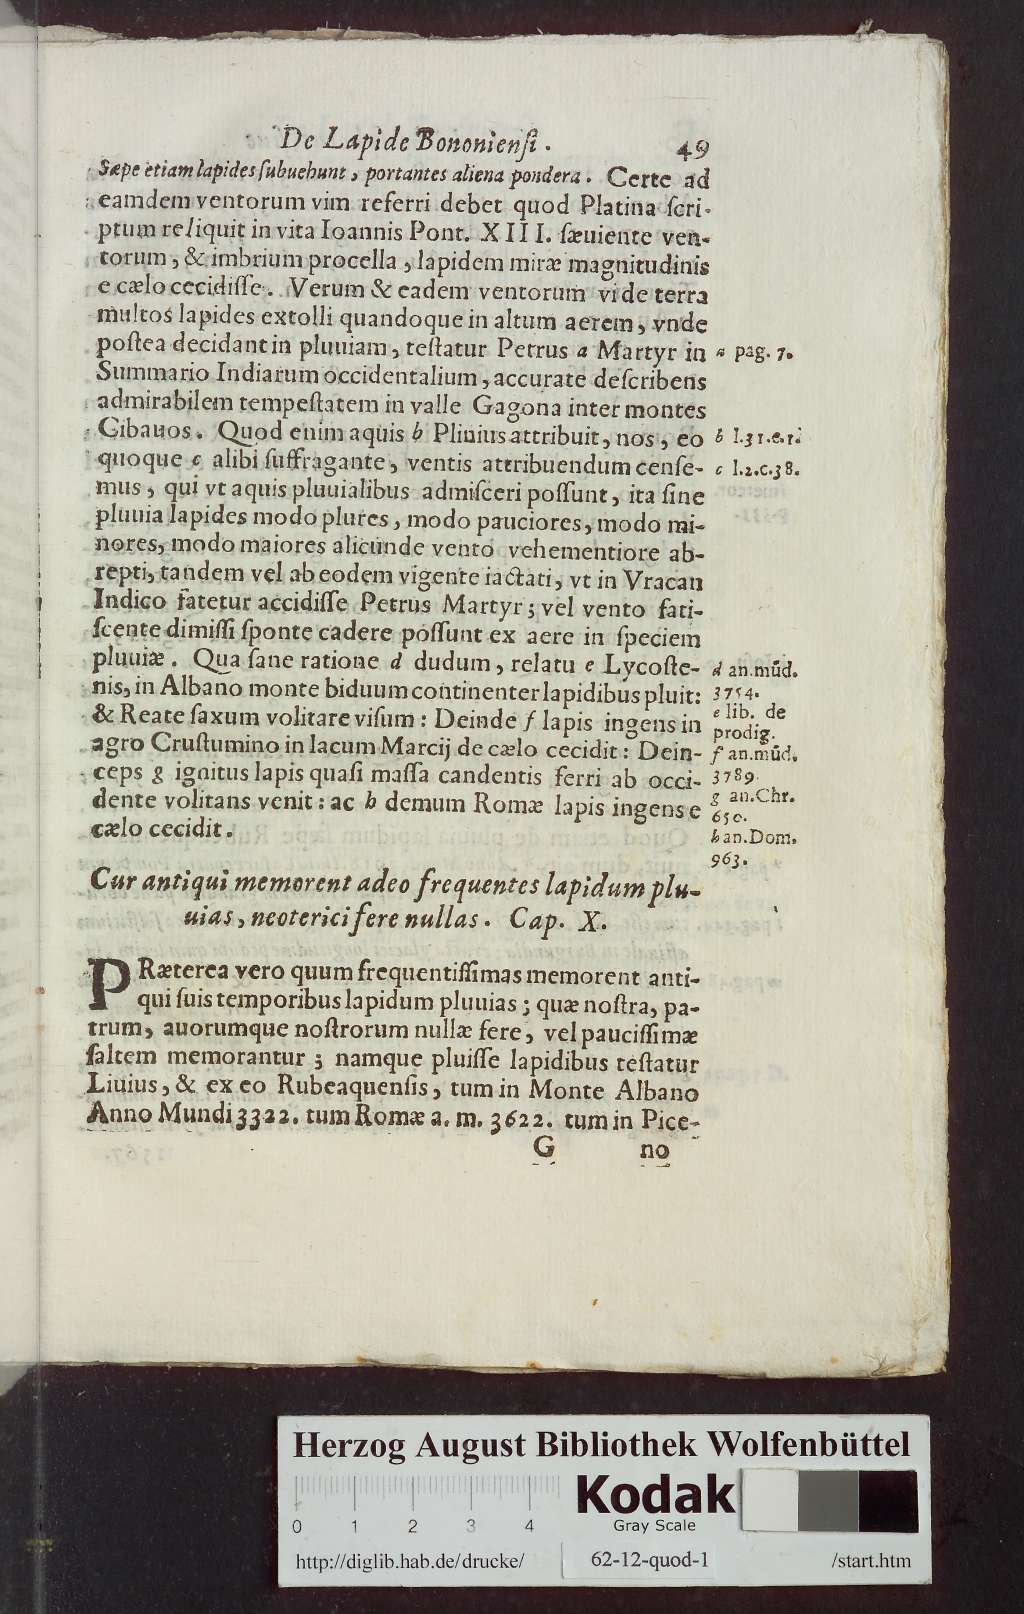 De Lapide Bononiensi. 49
Sæpe etiam lapides ſubuehunt, portantes aliena pondera. Certe ad
eamdem ventorum vim referri debet quod Platina ſcri-
ptum reliquit in vita Ioannis Pont. XIII. ſæuiente ven-
torum, & imbrium procella, lapidem miræ magnitudinis
e cælo cecidiſſe. Verum & eadem ventorum vi de terra
multos lapides extolli quandoque in altum aerem, vnde
poſtea decidant in pluuiam, teſtatur Petrus a Martyr in
Summario Indiarum occidentalium, accurate deſcribens
admirabilem tempeſtatem in valle Gagona inter montes
Cibauos. Quod enim aquis b Plinius attribuit, nos, eo
quoque c alibi ſuffragante, ventis attribuendum cenſe-
mus, qui vt aquis pluuialibus admiſceri poſſunt, ita ſine
pluuia lapides modo plures, modo pauciores, modo mi-
nores, modo maiores alicunde vento vehementiore ab-
repti, tandem vel ab eodem vigente iactati, vt in Vracan
Indico fatetur accidiſſe Petrus Martyr; vel vento fati-
ſcente dimiſſi ſponte cadere poſſunt ex aere in ſpeciem
pluuiæ. Qua ſane ratione d dudum, relatu e Lycoſte-
nis, in Albano monte biduum continenter lapidibus pluit:
& Reate ſaxum volitare viſum: Deinde f lapis ingens in
agro Cruſtumino in lacum Marcij de cælo cecidit: Dein-
ceps g ignitus lapis quaſi maſſa candentis ferri ab occi-
dente volitans venit: ac h demum Romæ lapis ingens e
cælo cecidit.
a pag. 7.
b l.31.c.1.
c l.2.c.38.
d an.mũd.
3754.
e lib. de
prodig.
f an.mũd.
3789.
g an.Chr.
650.
h an.Dom.
963.
Cur antiqui memorent adeo frequentes lapidum plu-
uias, neoterici fere nullas. Cap. X.
PRæterea vero quum frequentiſſimas memorent anti-
qui ſuis temporibus lapidum pluuias; quæ noſtra, pa-
trum, auorumque noſtrorum nullæ fere, vel pauciſſimæ
ſaltem memorantur; namque pluiſſe lapidibus teſtatur
Liuius, & ex eo Rubeaquenſis, tum in Monte Albano
Anno Mundi 3322. tum Romæ a. m. 3622. tum in Pice-
G no
Herzog August Bibliothek Wolfenbüttel
0 1 2 3 4
Kodak
Gray Scale
http://diglib.hab.de/drucke/ 62-12-quod-1 /start.htm